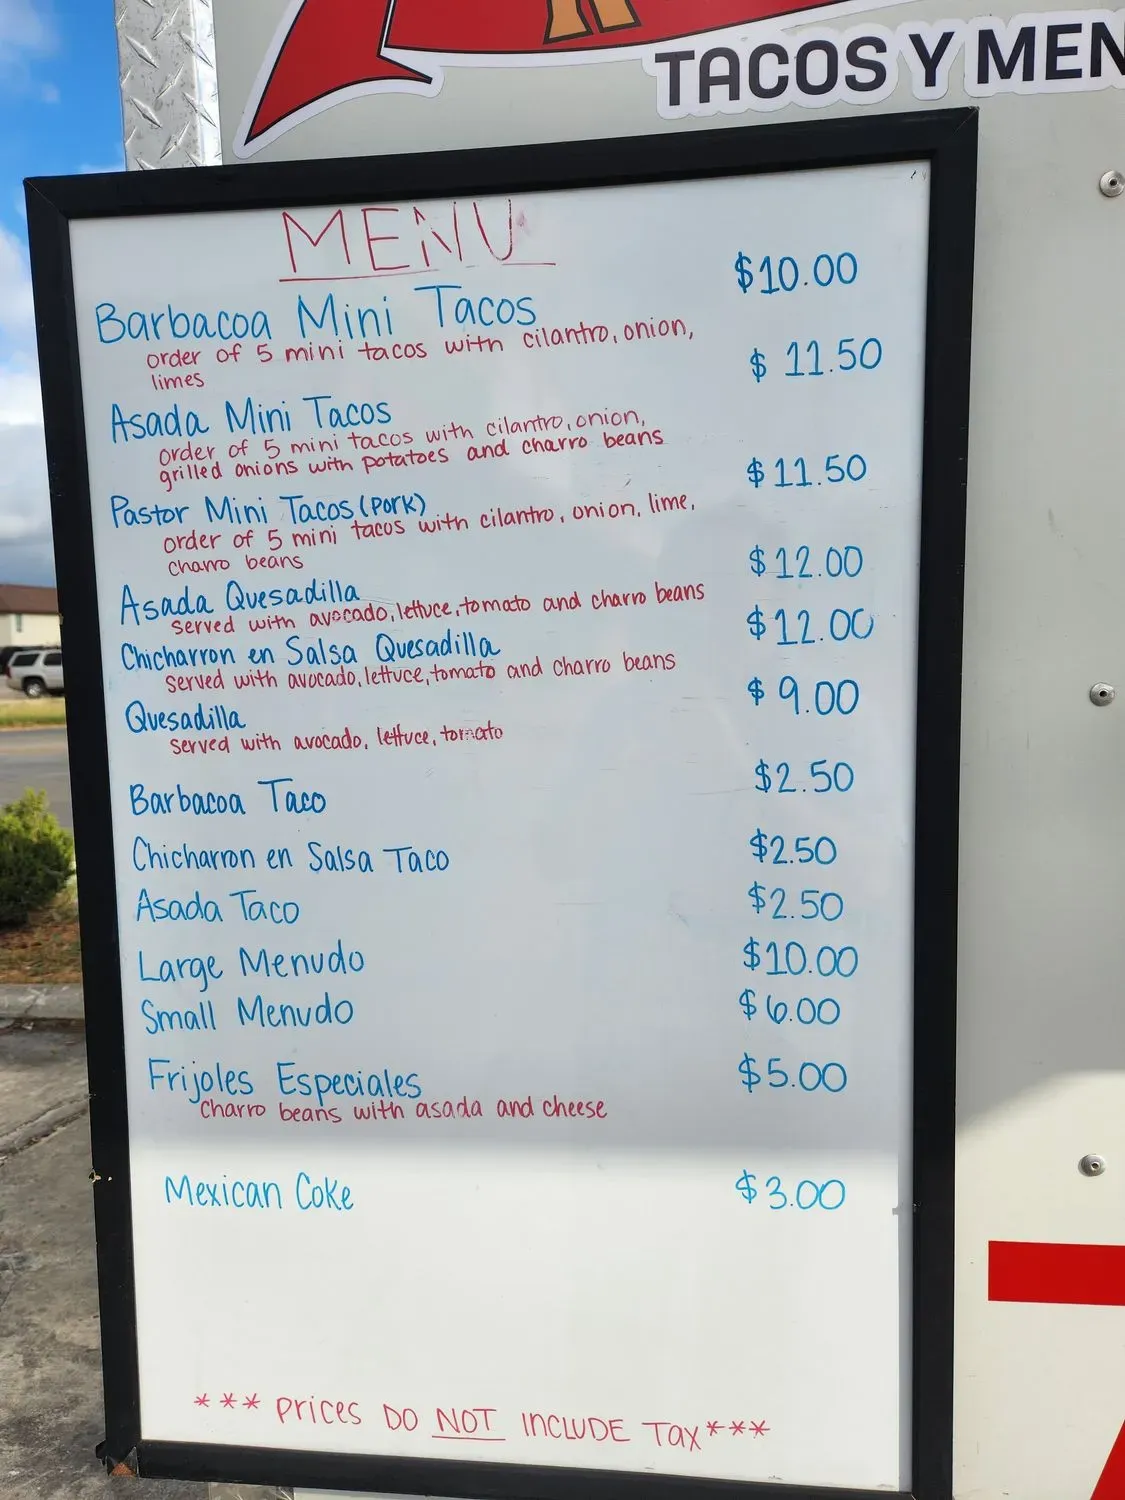 TACOS Y MEN
MENU
Barbacoa Mini Tacos $10.00
order of 5 mini tacos with cilantro, onion,
limes
Asada Mini Tacos $ 11.50
order of 5 mini tacos with cilantro, onion,
grilled onions with potatoes and charro beans
Pastor Mini Tacos (Pork) $11.50
order of 5 mini tacos with cilantro, onion, lime,
charro beans
Asada Quesadilla $12.00
served with avocado, lettuce, tomato and charro beans
Chicharron en Salsa Quesadilla $12.00
served with avocado, lettuce, tomato and charro beans
Quesadilla $ 9.00
served with avocado, lettuce, tomato
Barbacoa Taco $2.50
Chicharron en Salsa Taco $2.50
Asada Taco $2.50
Large Menudo $10.00
Small Menudo $6.00
Frijoles Especiales $5.00
charro beans with asada and cheese
Mexican Coke $3.00
*** Prices DO NOT INCLUDE Tax***